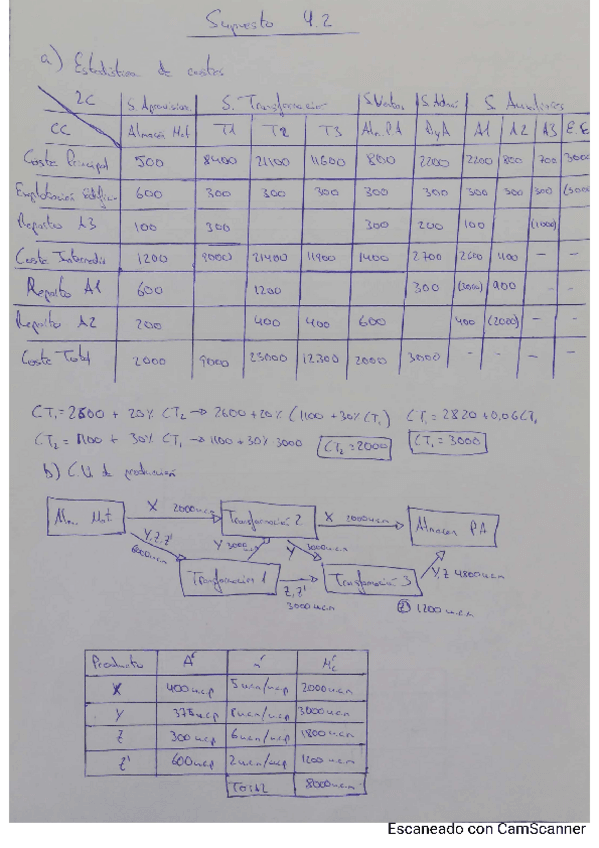 Supuesto 4.2
a) Estadística de costes
ZC S. Aprovision. S. Transformación S. Ventas S. Admó S. Auxiliares
CC Almacén Mat T1 T2 T3 Alm. PA DyA A1 A2 A3 E.E
Coste Principal 500 8400 21100 11600 800 2200 2200 800 700 3000
Explotación Edificio 600 300 300 300 300 300 300 300 300 (3000)
Reparto A3 100 300 300 200 100 (1000)
Coste Intermedio 1200 9000 21400 11900 1400 2700 2600 1100 - -
Reparto A1 600 1200 300 (3000) 900 - -
Reparto A2 200 400 400 600 400 (2000) - -
Coste Total 2000 9000 23000 12300 2000 3000 - - - -
CT₁ = 2600 + 20% CT₂ → 2600 + 20% (1100 + 30% CT₁) CT₁ = 2820 + 0,06 CT₁
CT₂ = 1100 + 30% CT₁ → 1100 + 30% 3000 CT₂ = 2000 CT₁ = 3000
b) C.U. de producción
Alm. Mat. X 2000 ucm Transformación 2 X 2000 ucm Almacén PA
Y, Z, Z' 6000 ucm Y 3000 ucm Y 3000 ucm Y, Z 4800 ucm
Transformación 1 Z, Z' 3000 ucm Transformación 3 Z' 1200 ucm
Producto Aᶜ nᶜ Mᶜc
X 400 ucp 5 ucm/ucp 2000 ucm
Y 375 ucp 8 ucm/ucp 3000 ucm
Z 300 ucp 6 ucm/ucp 1800 ucm
Z' 600 ucp 2 ucm/ucp 1200 ucm
TOTAL 8000 ucm
Escaneado con CamScanner